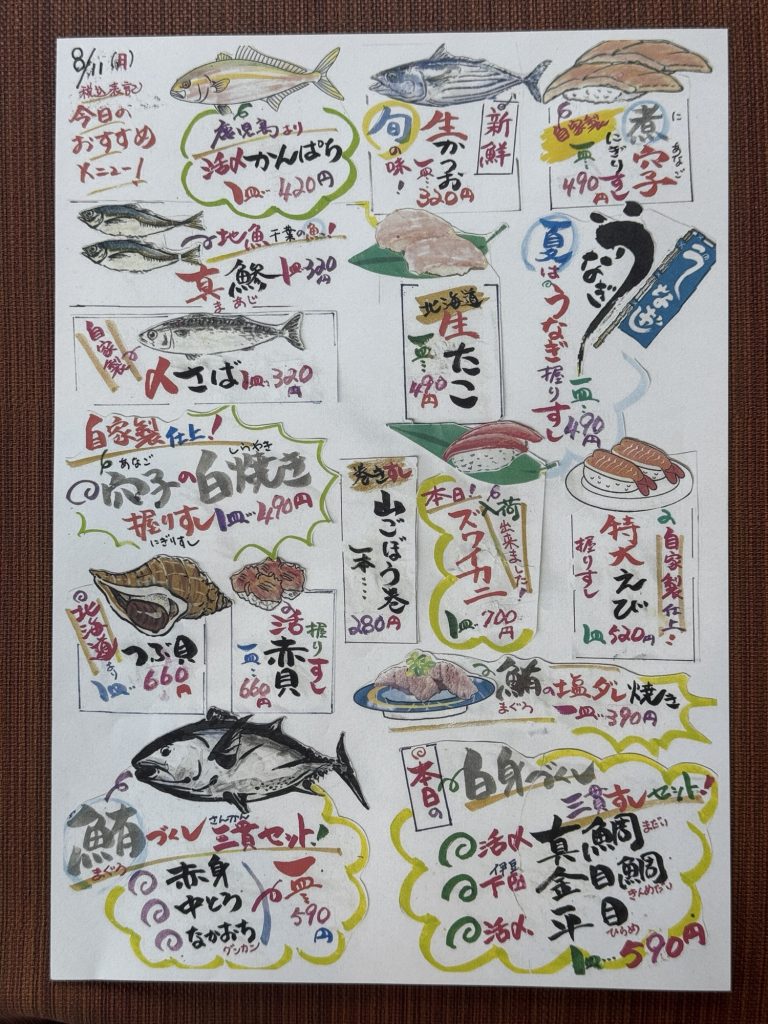 8/11(月)
税込表記
今日の
おすすめ
メニュー!
鹿児島より
活〆かんぱち
1皿…420円
旬の味!
新鮮
生かつお
一皿…320円
自家製
煮穴子
に
あなご
にぎりすし
一皿…490円
地魚 千葉の魚!
真鯵 1皿320円
まあじ
自家製
〆さば 1皿…320円
北海道
生たこ
一皿…490円
うなぎ
うなぎ
夏はうなぎ握りすし
一皿…490円
自家製仕上!
あなご しらやき
穴子の白焼き
握りすし 1皿…490円
にぎりすし
巻きすし
山ごぼう巻
一本……
280円
本日!
入荷出来ました!
ズワイカニ
1皿…700円
自家製仕上…
特大えび
握りすし
1皿520円
北海道より
つぶ貝
1皿…660円
握りすし
活赤貝
一皿…660円
鮪の塩ダレ焼き
まぐろ
一皿…390円
鮪づくし三貫セット!
まぐろ さんかん
赤身
中とろ
なかおち
グンカン
一皿…590円
本日の
白身づくし
三貫すしセット!
活〆 真鯛 まだい
伊豆下田 金目鯛 きんめだい
活〆 平目 ひらめ
1皿…590円